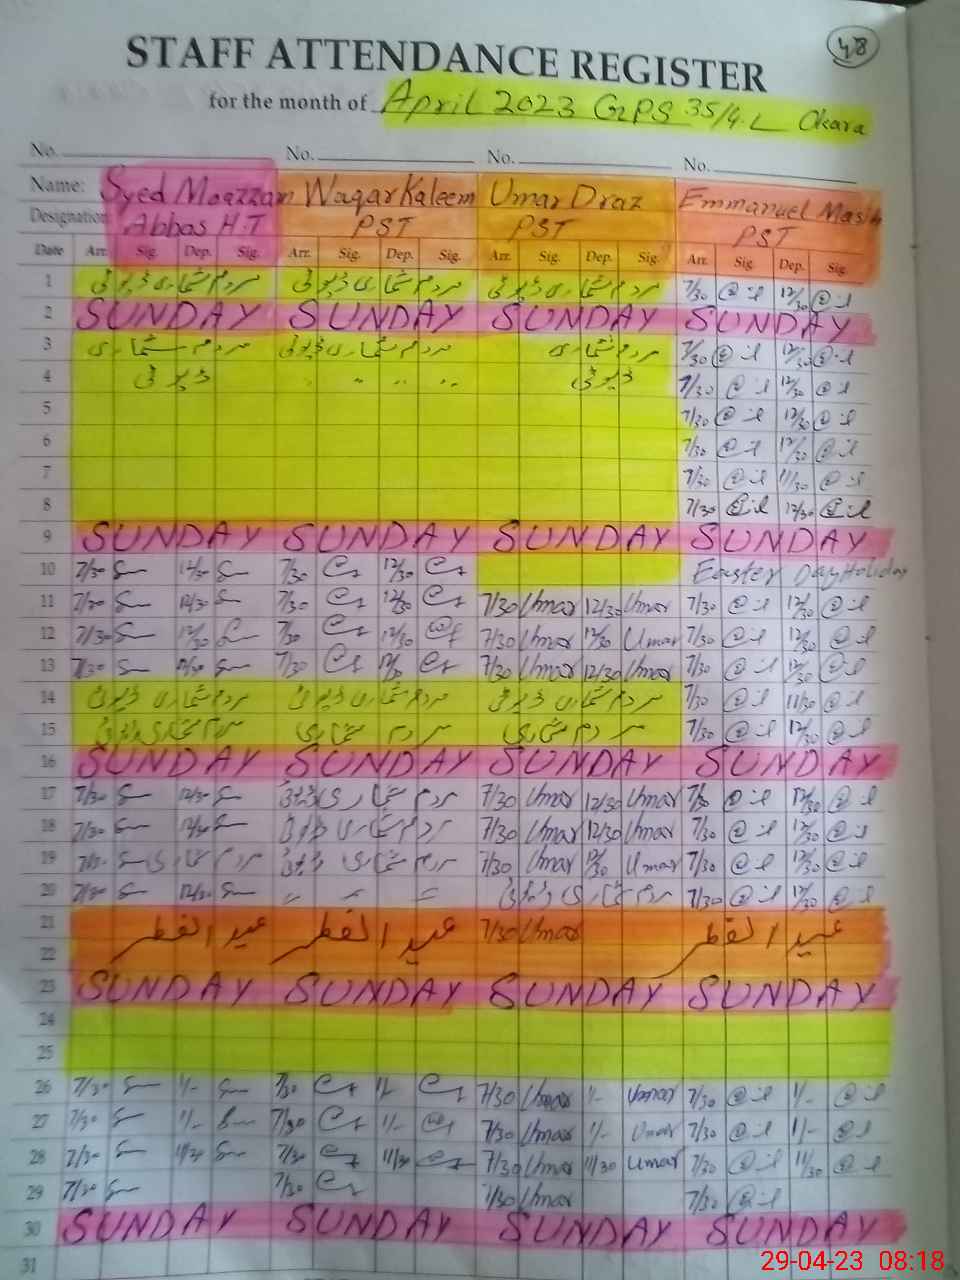 48
STAFF ATTENDANCE REGISTER
for the month of April 2023 GPS 35/4.L Okara
No. No. No. No.
Name: Syed Moazzam Waqar Kaleem Umar Draz Emmanuel Masih
Designation Abbas H.T PST PST PST
Date Arr. Sig. Dep. Sig. Arr. Sig. Dep. Sig. Arr. Sig. Dep. Sig. Arr. Sig. Dep. Sig.
1 مردم شماری ڈیوٹی مردم شماری ڈیوٹی مردم شماری ڈیوٹی 7/30 12/30
2 SUNDAY SUNDAY SUNDAY SUNDAY
3 مردم شماری مردم شماری ڈیوٹی مردم شماری 7/30 12/30
4 ڈیوٹی " " " " ڈیوٹی 7/30 12/30
5 7/30 12/30
6 7/30 12/30
7 7/30 11/30
8 7/30 12/30
9 SUNDAY SUNDAY SUNDAY SUNDAY
10 7/30 12/30 7/30 12/30 Easter Day Holiday
11 7/30 12/30 7/30 12/30 7/30 Umar 12/30 Umar 7/30 12/30
12 7/30 12/30 7/30 12/30 7/30 Umar 12/30 Umar 7/30 12/30
13 7/30 12/30 7/30 12/30 7/30 Umar 12/30 Umar 7/30 12/30
14 مردم شماری ڈیوٹی مردم شماری ڈیوٹی مردم شماری ڈیوٹی 7/30 11/30
15 مردم شماری ڈیوٹی مردم شماری مردم شماری 7/30 12/30
16 SUNDAY SUNDAY SUNDAY SUNDAY
17 7/30 12/30 مردم شماری ڈیوٹی 7/30 Umar 12/30 Umar 7/30 12/30
18 7/30 12/30 مردم شماری ڈیوٹی 7/30 Umar 12/30 Umar 7/30 12/30
19 7/30 مردم شماری مردم شماری ڈیوٹی 7/30 Umar 12/30 Umar 7/30 12/30
20 7/30 12/30 " " " مردم شماری ڈیوٹی 7/30 12/30
21 عید الفطر عید الفطر 7/30 Umar عید الفطر
22
23 SUNDAY SUNDAY SUNDAY SUNDAY
24
25
26 7/30 1/- 7/30 1/- 7/30 Umar 1/- Umar 7/30 1/-
27 7/30 1/- 7/30 1/- 7/30 Umar 1/- Umar 7/30 1/-
28 7/30 11/30 7/30 11/30 7/30 Umar 11/30 Umar 7/30 11/30
29 7/30 7/30 7/30 Umar 7/30
30 SUNDAY SUNDAY SUNDAY SUNDAY
31
29-04-23 08:18